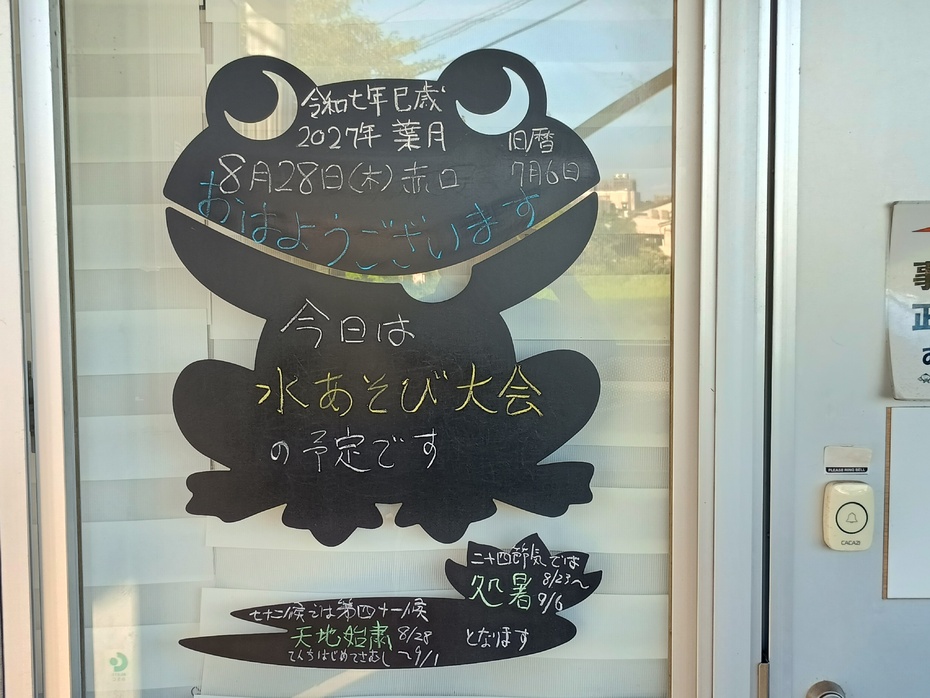 令和七年巳歳
2027年 葉月
旧暦
7月6日
8月28日(木)赤口
おはようございます
今日は
水あそび大会
の予定です
二十四節気では
処暑 8/23〜9/6
七十二候では第四十一候
天地始粛 8/28〜9/1
てんちはじめてさむし
となります
PLEASE RING BELL
CACAZI
事
正